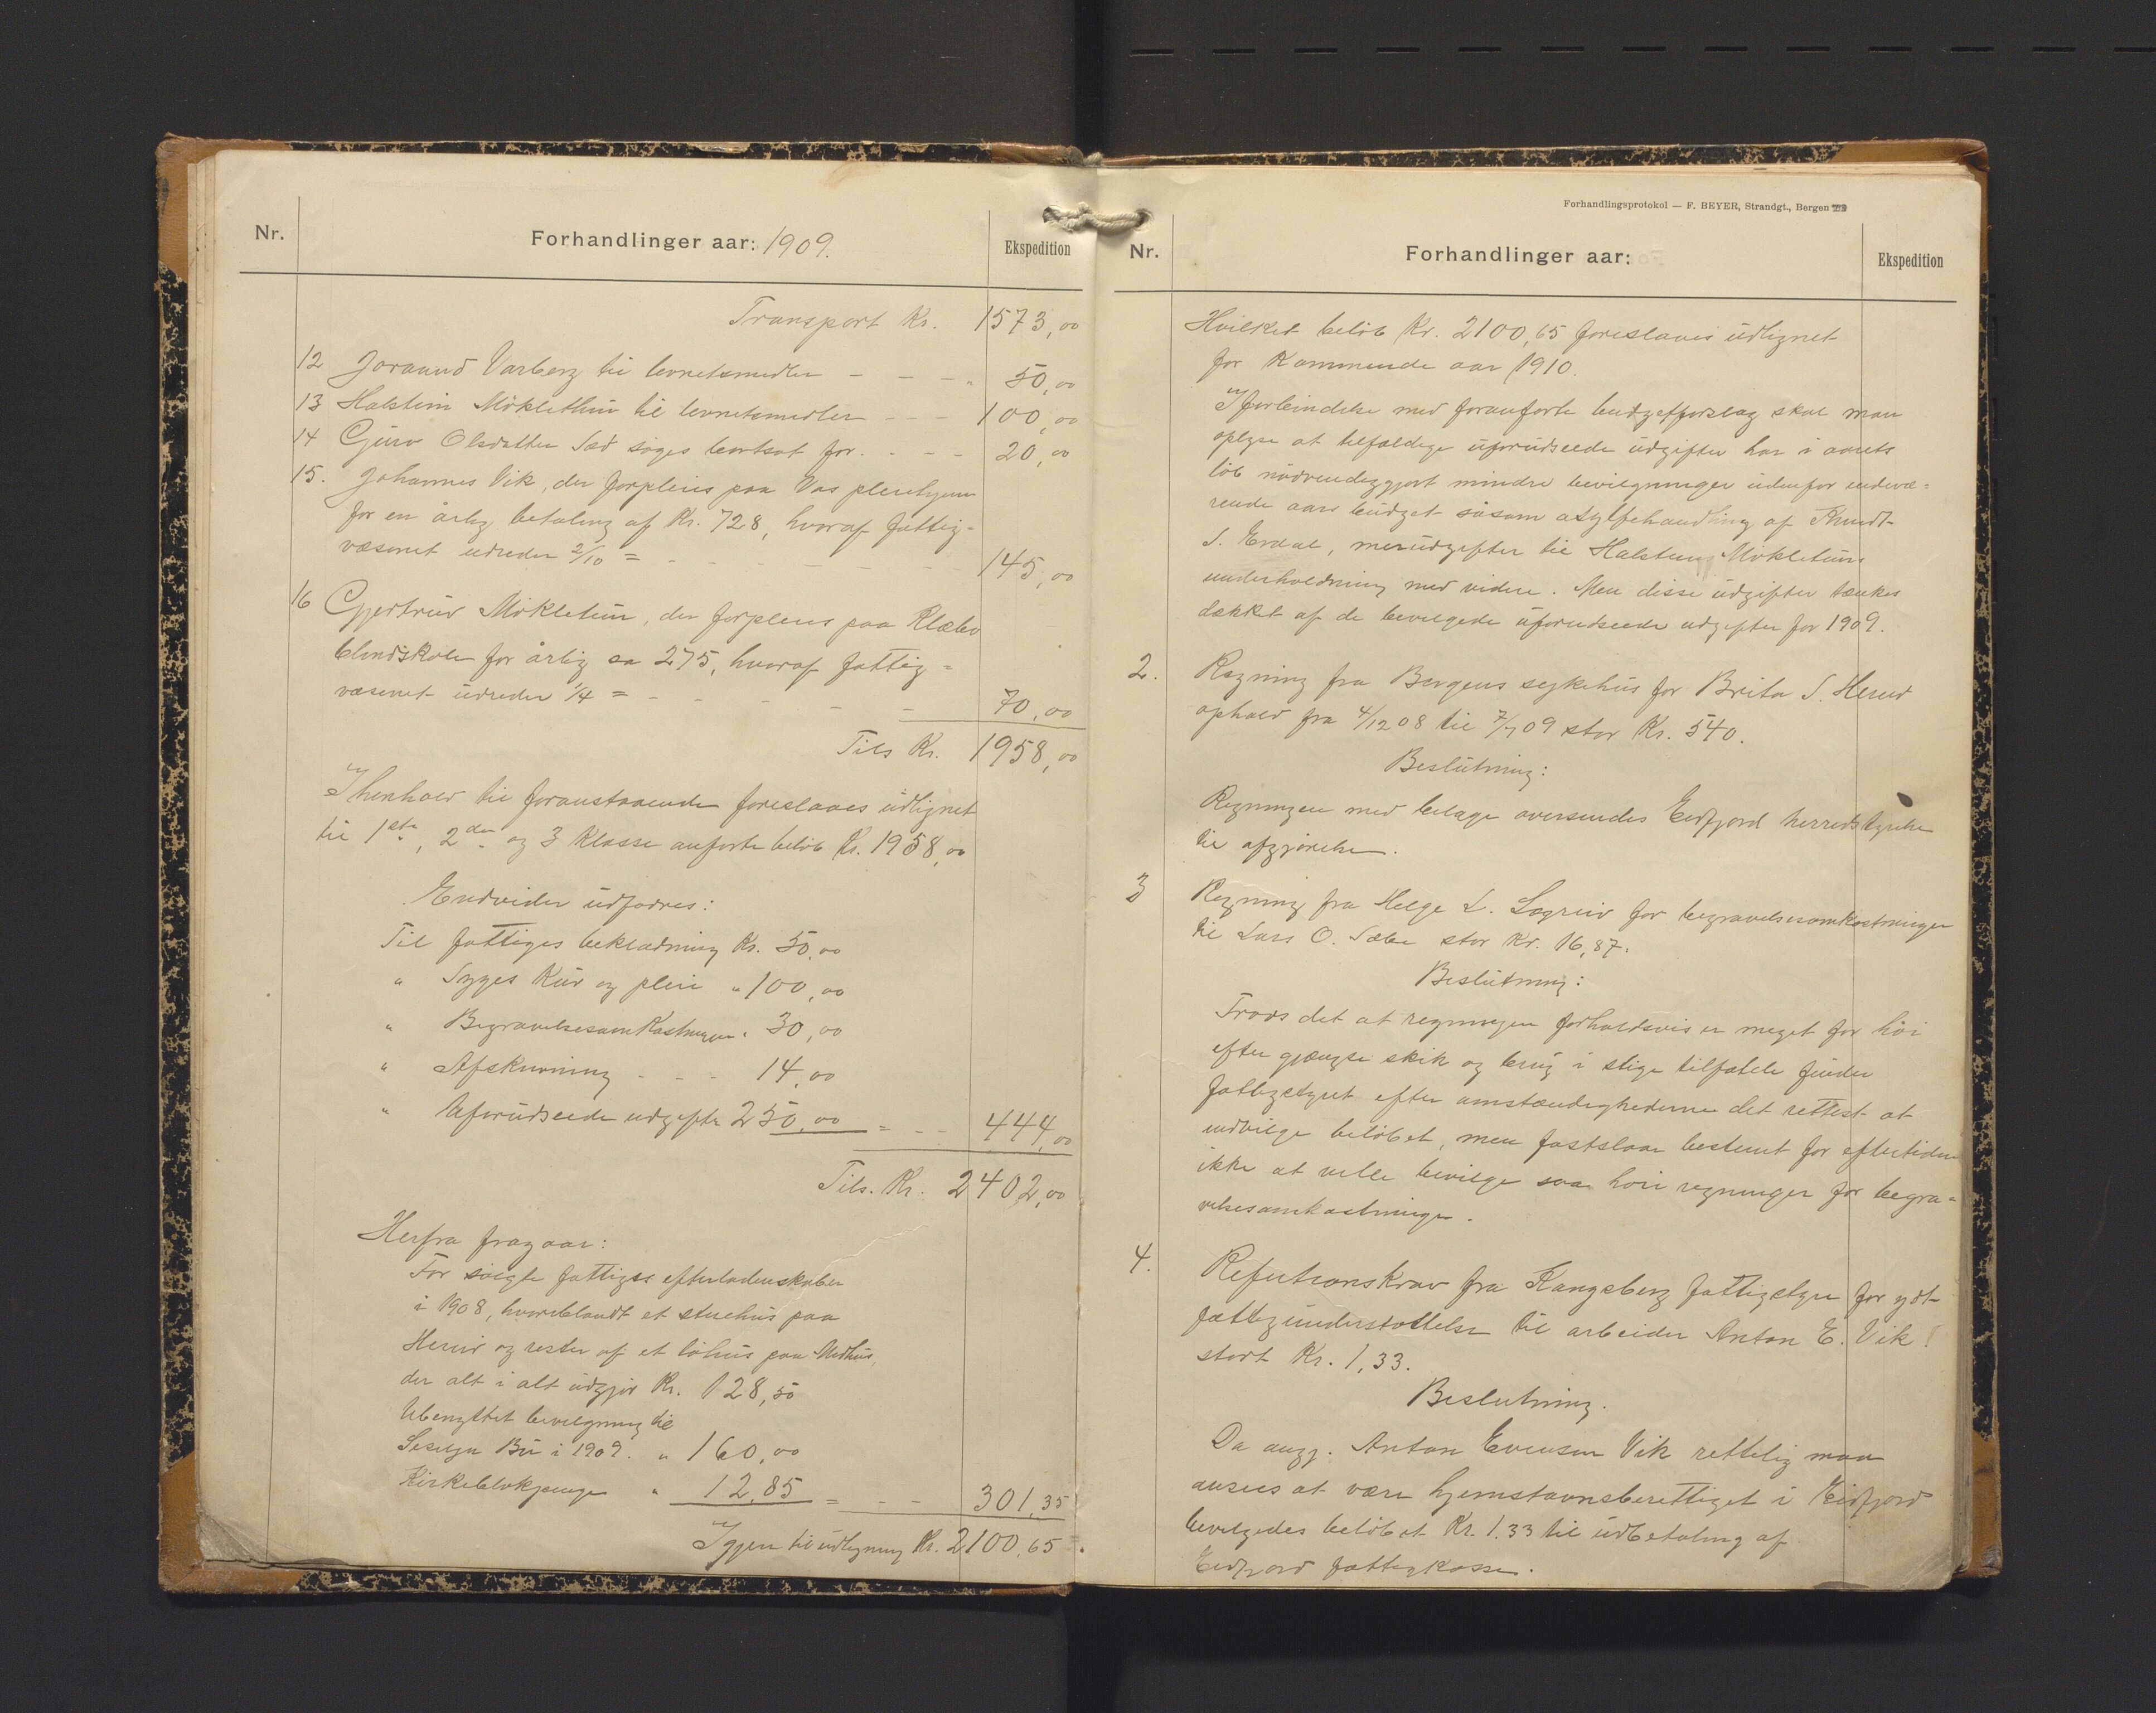 Nr.
Forhandlinger aar: 1909.
Ekspedition
Transport Kr. 1573,00
12 Joraand Varberg til levnetsmidler - - - " 50,00
13 Halstein Möklethun til levnetsmidler - - - 100,00
14 Guro Olsdatter Sæd söges bortsat for. - - - 20,00
15. Johannes Vik, der forpleies paa Vos pleiehjem
for en årlig betaling af Kr. 728, hvoraf fattig-
væsenet udreder 2/10 = - - - - - - 145,00
16 Gjertrud Mökletun, der forpleies paa Klæbo
blindskole for årlig ca 275, hvoraf fattig=
væsenet udreder 1/4 = - - - - - 70,00
Tils Kr. 1958,00
I henhold til foranstaaende foreslaaes udlignet
til 1ste, 2den og 3 klasse anförte belöb Kr. 1958,00
Endvider udfordres:
Til fattiges beklædning Kr. 50,00
" Syges Kur og pleie " 100,00
" Begravelsesomkostninger " 30,00
" Afskrivning - - - 14,00
" Uforudseede udgifter 250,00 = - - 444,00
Tils. Kr. 2402,00
Herfra fragaar:
For solgte fattiges efterladenskaber
i 1908, hvoriblandt et stuehus paa
Hereid og rester af et löhus paa Medhus,
der alt i alt udgjör Kr. 128,50
Ubenyttet bevilgning til
Bu i 1909. " 160,00
Kirkeblokpenge " 12,85 = - - 301,35
Igjen til udligning Kr. 2100,65.
Forhandlingsprotokol — F. BEYER, Strandgt., Bergen
Nr.
Forhandlinger aar:
Ekspedition
Hvilket belöb Kr. 2100,65 foreslaaes udlignet
for kommende aar 1910.
I forbindelse med foranförte budgetforslag skal man
oplyse at tilfældige uforudseede udgifter har i aarets
löb nödvendiggjort mindre bevilgninger udenfor indevæ=
rende aars budget såsom asylbehandling af Knudt
S. Erdal, merudgifter til Halstein Mökletuns
underholdning med videre. Men disse udgifter tænkes
dækket af de bevilgede uforudseede udgifter for 1909.
2. Regning fra Bergens sykehus for Brita S. Hereid
ophold fra 4/12 08 til 7/7 09 stor Kr. 540.
Beslutning:
Regningen med bilage oversendes Eidfjord herredstyrelse
til afgjörelse.
3 Regning fra Helge L. Lægreid for begravelsesomkostninger
til Lars O. Sæbö stor Kr. 16,87.
Beslutning:
Trods det at regningen forholdsvis er meget for höi
efter gjængse skik og brug i slige tilfælde finder
fattigstyret efter omstændighederne det rettest at
indvilge belöbet, men fastslaar bestemt for eftertiden
ikke at ville bevilge saa höie regninger for begra=
velsesomkostninger.
4. Refusionskrav fra Kongsberg fattigstyre for ydt
fattigunderstöttelse til arbeider Anton E. Vik
stort Kr. 1,33.
Beslutning.
Da angj. Anton Evensen Vik rettelig maa
ansees at være hjemstavnsberettiget i Eidfjord
bevilgedes belöbet Kr. 1.33 til udbetaling af
Eidfjord fattigkasse.